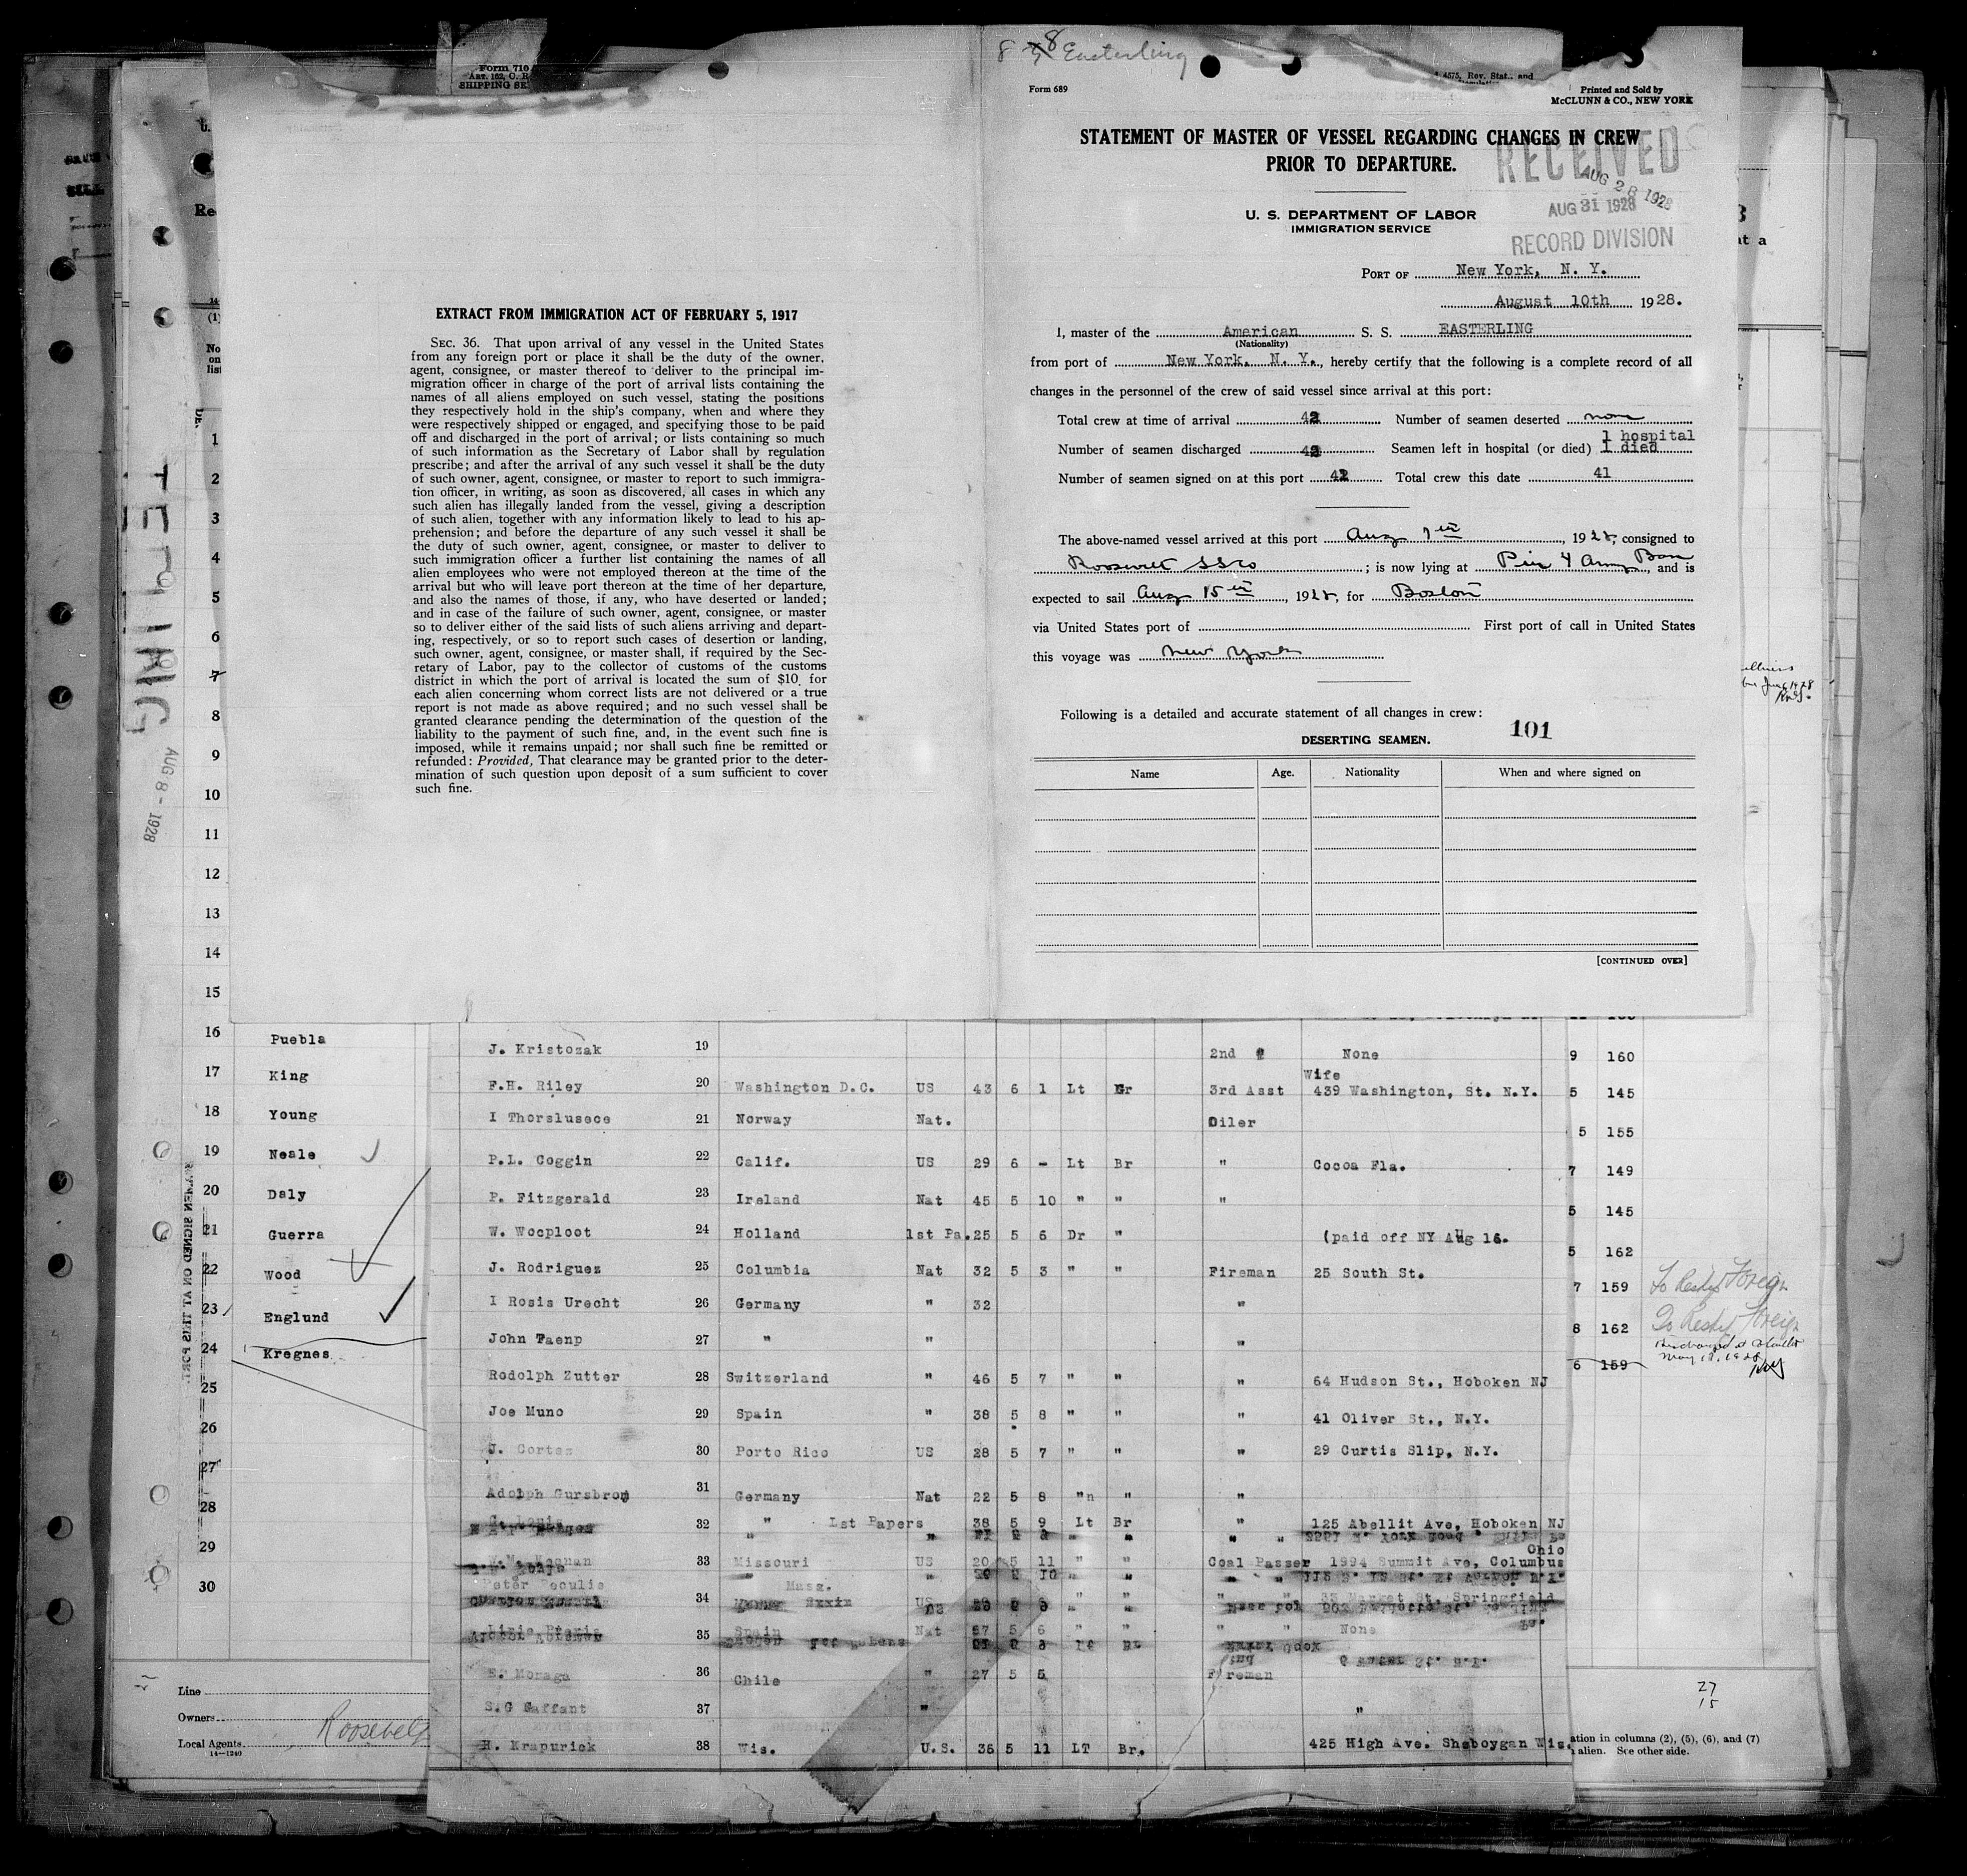 8-8 Easterling
Form 710
SHIPPING SE
4575, Rev. Stat., and
Form 689
Printed and Sold by
McCLUNN & CO., NEW YORK
STATEMENT OF MASTER OF VESSEL REGARDING CHANGES IN CREW
PRIOR TO DEPARTURE.
RECEIVED
AUG 28 1928
AUG 31 1928
RECORD DIVISION
U. S. DEPARTMENT OF LABOR
IMMIGRATION SERVICE
PORT OF New York, N. Y.
August 10th 1928.
I, master of the American S. S. EASTERLING
(Nationality)
from port of New York, N. Y., hereby certify that the following is a complete record of all
changes in the personnel of the crew of said vessel since arrival at this port:
Total crew at time of arrival 42 Number of seamen deserted none
Number of seamen discharged 42 Seamen left in hospital (or died) 1 hospital
1 died
Number of seamen signed on at this port 42 Total crew this date 41
The above-named vessel arrived at this port Aug 7th, 1928, consigned to
Roosevelt SSCo; is now lying at Pier 4 Army Base, and is
expected to sail Aug 15th, 1928, for Boston
via United States port of First port of call in United States
this voyage was New York
Following is a detailed and accurate statement of all changes in crew:
101
DESERTING SEAMEN.
Name Age. Nationality When and where signed on
[CONTINUED OVER]
EXTRACT FROM IMMIGRATION ACT OF FEBRUARY 5, 1917
SEC. 36. That upon arrival of any vessel in the United States
from any foreign port or place it shall be the duty of the owner,
agent, consignee, or master thereof to deliver to the principal im-
migration officer in charge of the port of arrival lists containing the
names of all aliens employed on such vessel, stating the positions
they respectively hold in the ship's company, when and where they
were respectively shipped or engaged, and specifying those to be paid
off and discharged in the port of arrival; or lists containing so much
of such information as the Secretary of Labor shall by regulation
prescribe; and after the arrival of any such vessel it shall be the duty
of such owner, agent, consignee, or master to report to such immigra-
tion officer, in writing, as soon as discovered, all cases in which any
such alien has illegally landed from the vessel, giving a description
of such alien, together with any information likely to lead to his ap-
prehension; and before the departure of any such vessel it shall be
the duty of such owner, agent, consignee, or master to deliver to
such immigration officer a further list containing the names of all
alien employees who were not employed thereon at the time of the
arrival but who will leave port thereon at the time of her departure,
and also the names of those, if any, who have deserted or landed;
and in case of the failure of such owner, agent, consignee, or master
so to deliver either of the said lists of such aliens arriving and depart-
ing, respectively, or so to report such cases of desertion or landing,
such owner, agent, consignee, or master shall, if required by the Sec-
retary of Labor, pay to the collector of customs of the customs
district in which the port of arrival is located the sum of $10 for
each alien concerning whom correct lists are not delivered or a true
report is not made as above required; and no such vessel shall be
granted clearance pending the determination of the question of the
liability to the payment of such fine, and, in the event such fine is
imposed, while it remains unpaid; nor shall such fine be remitted or
refunded: Provided, That clearance may be granted prior to the deter-
mination of such question upon deposit of a sum sufficient to cover
such fine.
AUG 8 - 1928
1
2
3
4
5
6
7
8
9
10
11
12
13
14
15
16 Puebla
17 King
18 Young
19 Neale
20 Daly
21 Guerra
22 Wood
23 Englund
24 Kregnes
25
26
27
28
29
30
J. Kristozak 19 2nd None 9 160
Wife
F.H. Riley 20 Washington D.C. US 43 6 1 Lt Gr 3rd Asst 439 Washington, St. N.Y. 5 145
I Thorslusece 21 Norway Nat. Oiler 5 155
P.L. Coggin 22 Calif. US 29 6 - Lt Br " Cocoa Fla. 7 149
P. Fitzgerald 23 Ireland Nat 45 5 10 " " " 5 145
W. Wocploot 24 Holland 1st Pa. 25 5 6 Dr " (paid off NY Aug 16. 5 162
J. Rodriguez 25 Columbia Nat 32 5 3 " " Fireman 25 South St. 7 159
I Rosis Urecht 26 Germany " 32 " 8 162
John Paenp 27 " " " 6 159
Rodolph Zutter 28 Switzerland " 46 5 7 " " " 64 Hudson St., Hoboken NJ
Joe Muno 29 Spain " 38 5 8 " " " 41 Oliver St., N.Y.
J. Cortes 30 Porto Rico US 28 5 7 " " " 29 Curtis Slip, N.Y.
Adolph Gursbrom 31 Germany Nat 22 5 8 "n " "
32 " 1st Papers 38 5 9 Lt Br " 125 Abellit Ave, Hoboken NJ
Ohio
33 Missouri US 20 5 11 " " Coal Passer 1994 Summit Ave, Columbus
34 Mass. US " " Market St, Springfield
35 Spain Nat 57 5 6 " " " " None
E. Moraga 36 Chile " 27 5 5 Fireman
S.G Gaffant 37 " "
H. Krapurick 38 Wis. U.S. 36 5 11 LT Br. 425 High Ave. Sheboygan Wis.
Line
Owners
Local Agents Roosevel
14—1240
27
15
ation in columns (2), (5), (6), and (7)
alien. See other side.